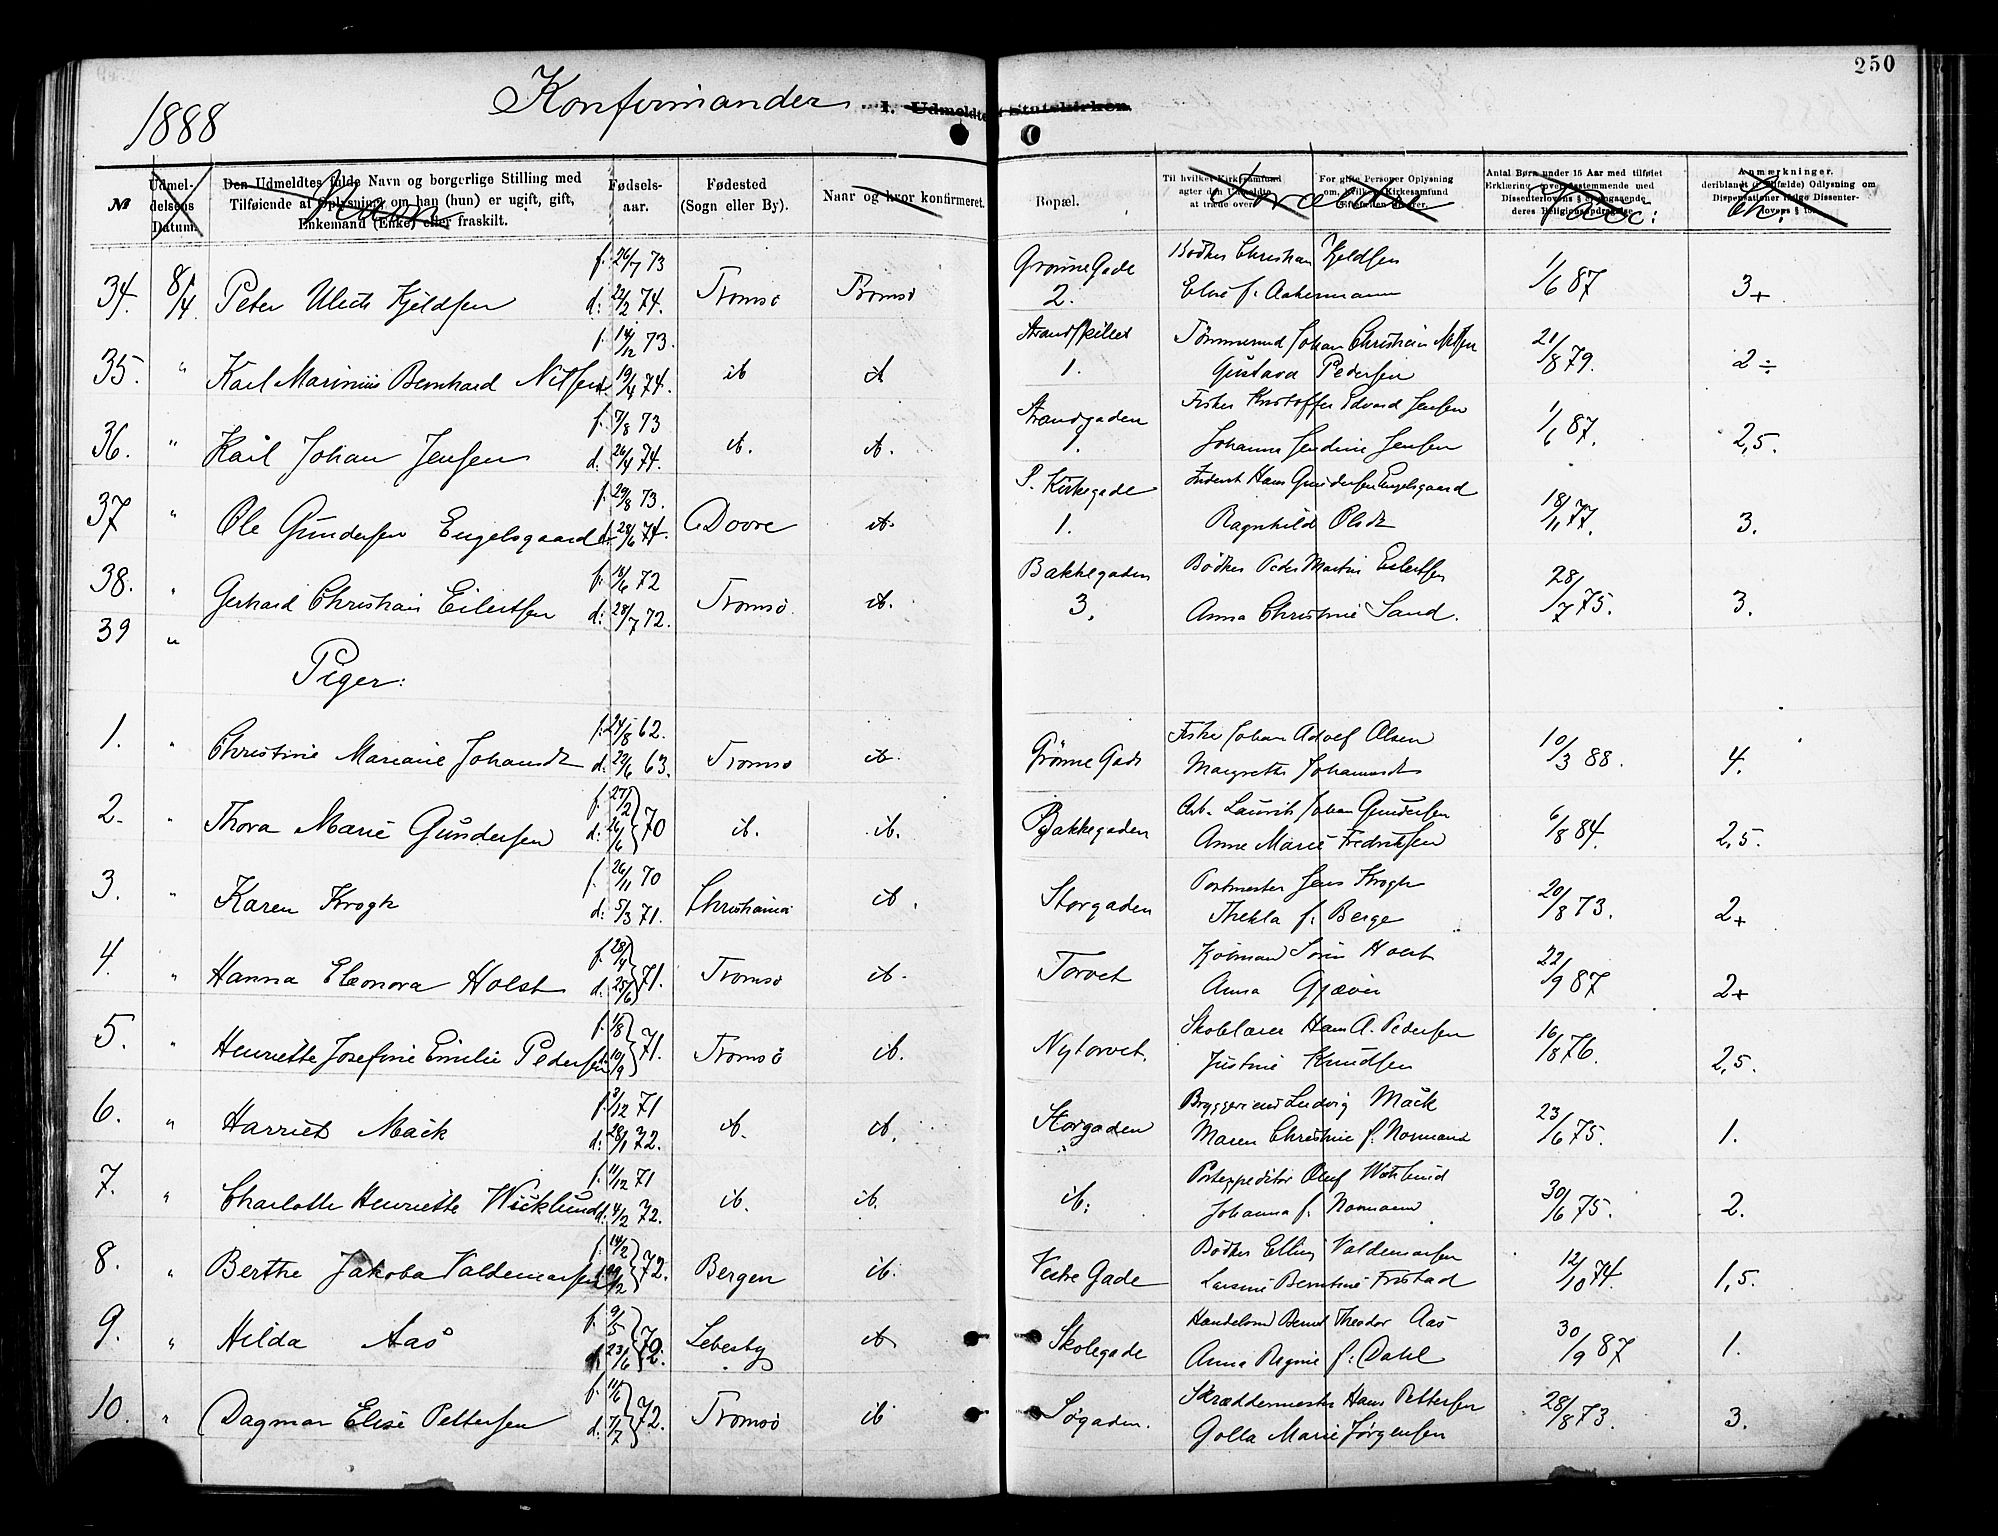 250
1888
Konfirmander
I. Udmeldte Statskirken
№
Udmeldelsens Datum.
Den Udmeldtes fulde Navn og borgerlige Stilling med Tilføiende af Oplysning om han (hun) er ugift, gift, Enkemand (Enke) eller fraskilt.
Navn
Fødselsaar.
Fødested (Sogn eller By).
Naar og hvor konfirmeret.
Bopæl.
Til hvilket Kirkesamfund agter den Udmeldte at træde over.
For gifte Personer Oplysning om, hvilket Kirkesamfund Ægtefællen tilhører.
Forældre
Antal Børn under 15 Aar med tilføiet Erklæring overensstemmende med Dissenterlovens § angaaende deres Religionsopdragelse.
Vacc:
Anmærkninger.
deriblandt (i Tilfælde) Oplysning om Dispensationer ifølge Dissenterlovens § 10.
Ch:
f. 26/7 73 Grønne Gade Bødker Christian Kjeldsen
34. 8/4 Peter Ulrik Kjeldsen d: 22/2 74. Tromsø Tromsø 2. Elise f. Ackermann 1/6 87 3+
f. 14/12 73. Strandskillet Tømmermd Johan Christian Nilsen
35. " Karl Marinius Bernhard Nilsen d. 19/4 74. ib ib 1. Gustava Pedersen 21/8 79. 2÷
f. 7/8 73 Strandgaden Fisker Kristoffer Edvard Jensen
36. " Karl Johan Jensen d: 26/4 74. ib. ib. 1. Johanna Jensen 1/6 87. 2,5.
f. 29/8 73. Kirkegade Hans Gundersen Engelsgaard
37 " Ole Gundersen Engelsgaard d. 28/6 74. Dovre ib. 1. Ragnhild Olsdt 18/11 77. 3.
f. 18/6 72 Bakkegaden Bødker Peder Martin Eilertsen
38. " Gerhard Christian Eilertsen d: 28/7 72. Tromsø. ib. 3. Anna Christine Sand. 28/7 75. 3.
39 "
Piger:
f. 24/8 62. Fisker Johan Adolf Olsen
1. " Christine Mariane Johansdt d. 29/6 63. Tromsø ib. Grønne Gade Margrethe Johannesdt 10/3 88. 4.
f. 27/2 Arb. Laurits Johan Gundersen
2. " Thora Marie Gundersen d. 26/6 70 ib. ib. Bakkegaden Anne Marie Fredriksen 6/8 84. 2,5.
f. 26/11 70 Postmester Jens Krogh
3. " Karen Krogh d: 5/3 71. Christiania ib. Storgaden Thekla f. Berge 20/8 73. 2+
f. 28/4 Kjøbmand Sørin Holst
4. " Hanna Eleonora Holst d. 25/6 71. Tromsø ib. Torvet Anna Gjæver 22/9 87 2+
f. 1/8 Skolelærer Hans A. Pedersen
5. " Henriette Josefine Emilie Pedersen 10/9 71. Tromsø ib. Nytorvet. Justine Knudsen 16/8 76. 2,5.
f. 2/12 71 Bryggerieier Ludvig Mack
6. " Harriet Mack d. 28/1 72. ib. ib. Storgaden Maren Christine f. Normand 23/6 75. 1.
f. 11/12 71 Postexpeditør Oluf Wicklund
7. " Charlotte Henriette Wicklund d. 4/2 72. ib. ib. ib: Johanna f. Normann 30/6 75. 2.
f. 14/2 Bødker Elling Valdemarsen
8. " Berthe Jakoba Valdemarsen 72. Bergen ib. Vestre Gade Larsine Berntine Fristad 12/10 74. 1,5.
f. 9/5 Handelsmd Bernt Theodor Aas
9. " Hilda Aas 23/6 72. Lebesby ib Skolegade Anna Regine f. Dahl 30/9 87 1.
f. 11/6 Skræddermester Hans Pettersen
10. " Dagmar Elise Pettersen d. 7/7 72. Tromsø ib Søgaden. Golla Marie Jørgensen 28/8 73. 3.